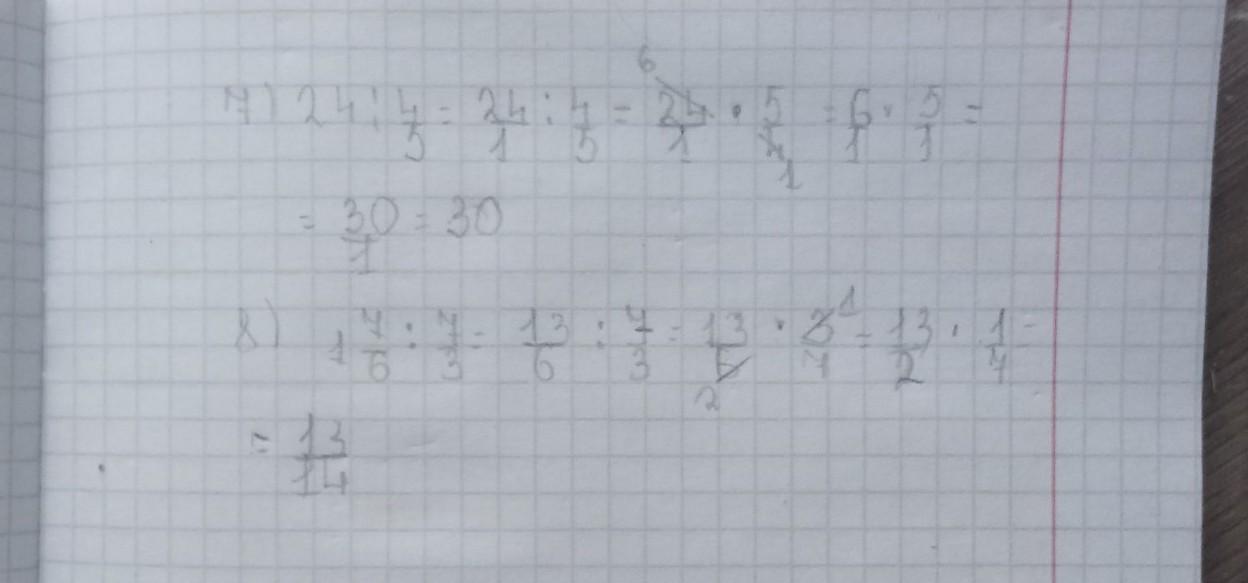 7) 24 : 4/5 = 24/1 : 4/5 = 24/1 · 5/4 = 6/1 · 5/1 =
= 30/1 = 30
8) 1 7/6 : 7/3 = 13/6 : 7/3 = 13/6 · 3/7 = 13/2 · 1/7 =
= 13/14